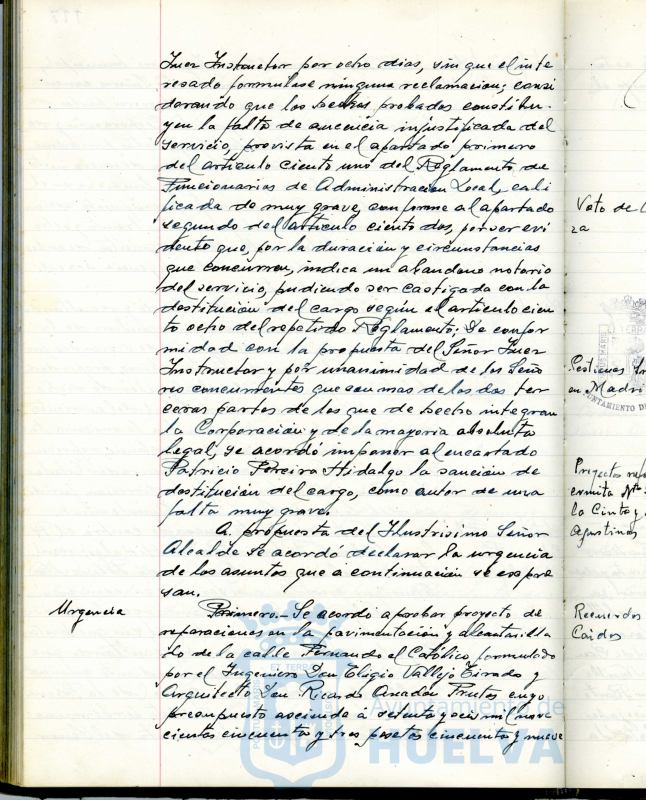 Juez Instructor por ocho dias, sin que el inte
resado formulase ninguna reclamacion; consi
derando que los hechos probados constitu-
yen la falta de ausencia injustificada del
servicio, prevista en el apartado primero
del articulo ciento uno del Reglamento de
Funcionarios de Administracion Local, cali
ficada de muy grave, conforme al apartado
segundo del articulo ciento dos, por ser evi
dente que, por la duración y circunstancias
que concurren, indica un abandono notorio
del servicio, pudiendo ser castigada con la
destitución del cargo según el articulo cien
to ocho del repetido Reglamento; De confor
midad con la propuesta del Señor Juez
Instructor y por unanimidad de los Seño
res concurrentes que son mas de las dos ter
ceras partes de los que de hecho integran
la Corporación y de la mayoria absoluta
legal, se acordó imponer al encartado
Patricio Pereira Hidalgo la sanción de
destitución del cargo, como autor de una
falta muy grave.
A propuesta del Ilustrisimo Señor
Alcalde se acordó declarar la urgencia
de los asuntos que a continuación se expre
san.
Urgencia
Primero.- Se acordó aprobar proyecto de
reparaciones en la pavimentación y alcantarilla
do de la calle Fernando el Católico, formulado
por el Ingeniero Don Eligio Vallejo Tirado y
Arquitecto Don Ricardo Anadón Frutos cuyo
presupuesto asciende á setenta y seis mil nove
cientas cincuenta y tres pesetas cincuenta y nueve
Voto de
za
en Madri
Proyecto
ermita Ntra
la Cinta y
Agustinas
Recuerdos
Caidos
Ayuntamiento de
HUELVA